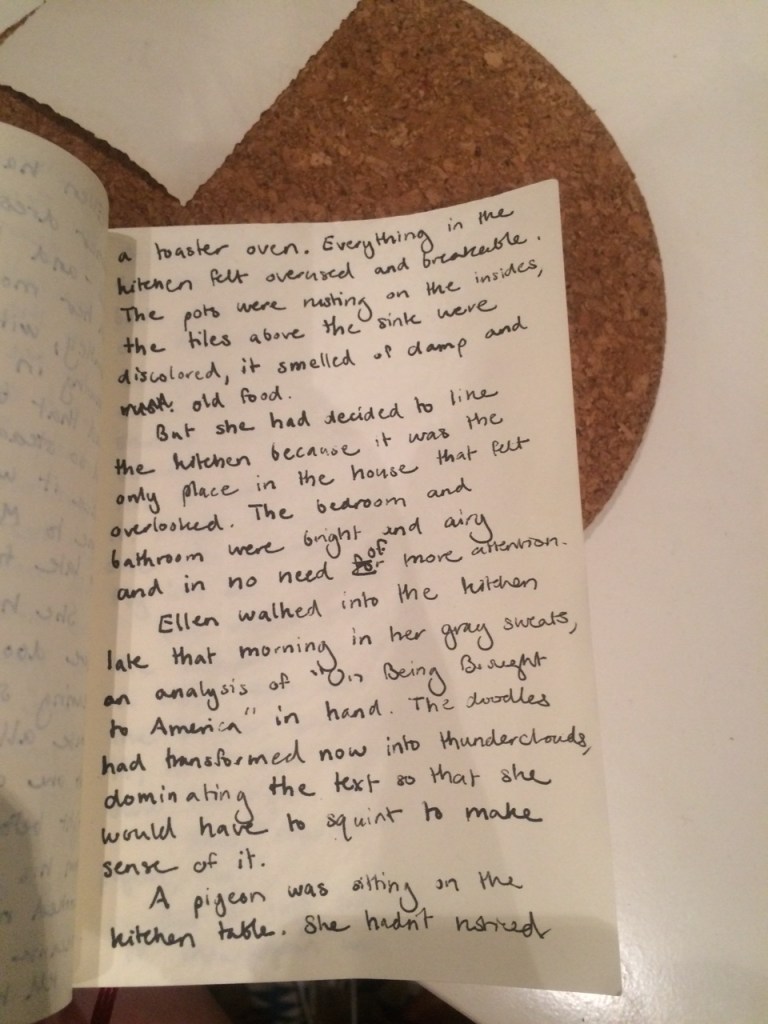 a toaster oven. Everything in the
kitchen felt overused and breakeable.
The pots were rusting on the insides,
the tiles above the sink were
discolored, it smelled of damp and
old food.
But she had decided to line
the kitchen because it was the
only place in the house that felt
overlooked. The bedroom and
bathroom were bright and airy
and in no need of more attention.
Ellen walked into the kitchen
late that morning in her gray sweats,
an analysis of "On Being Brought
to America" in hand. The doodles
had transformed now into thunderclouds,
dominating the text so that she
would have to squint to make
sense of it.
A pigeon was sitting on the
kitchen table. She hadn't noticed